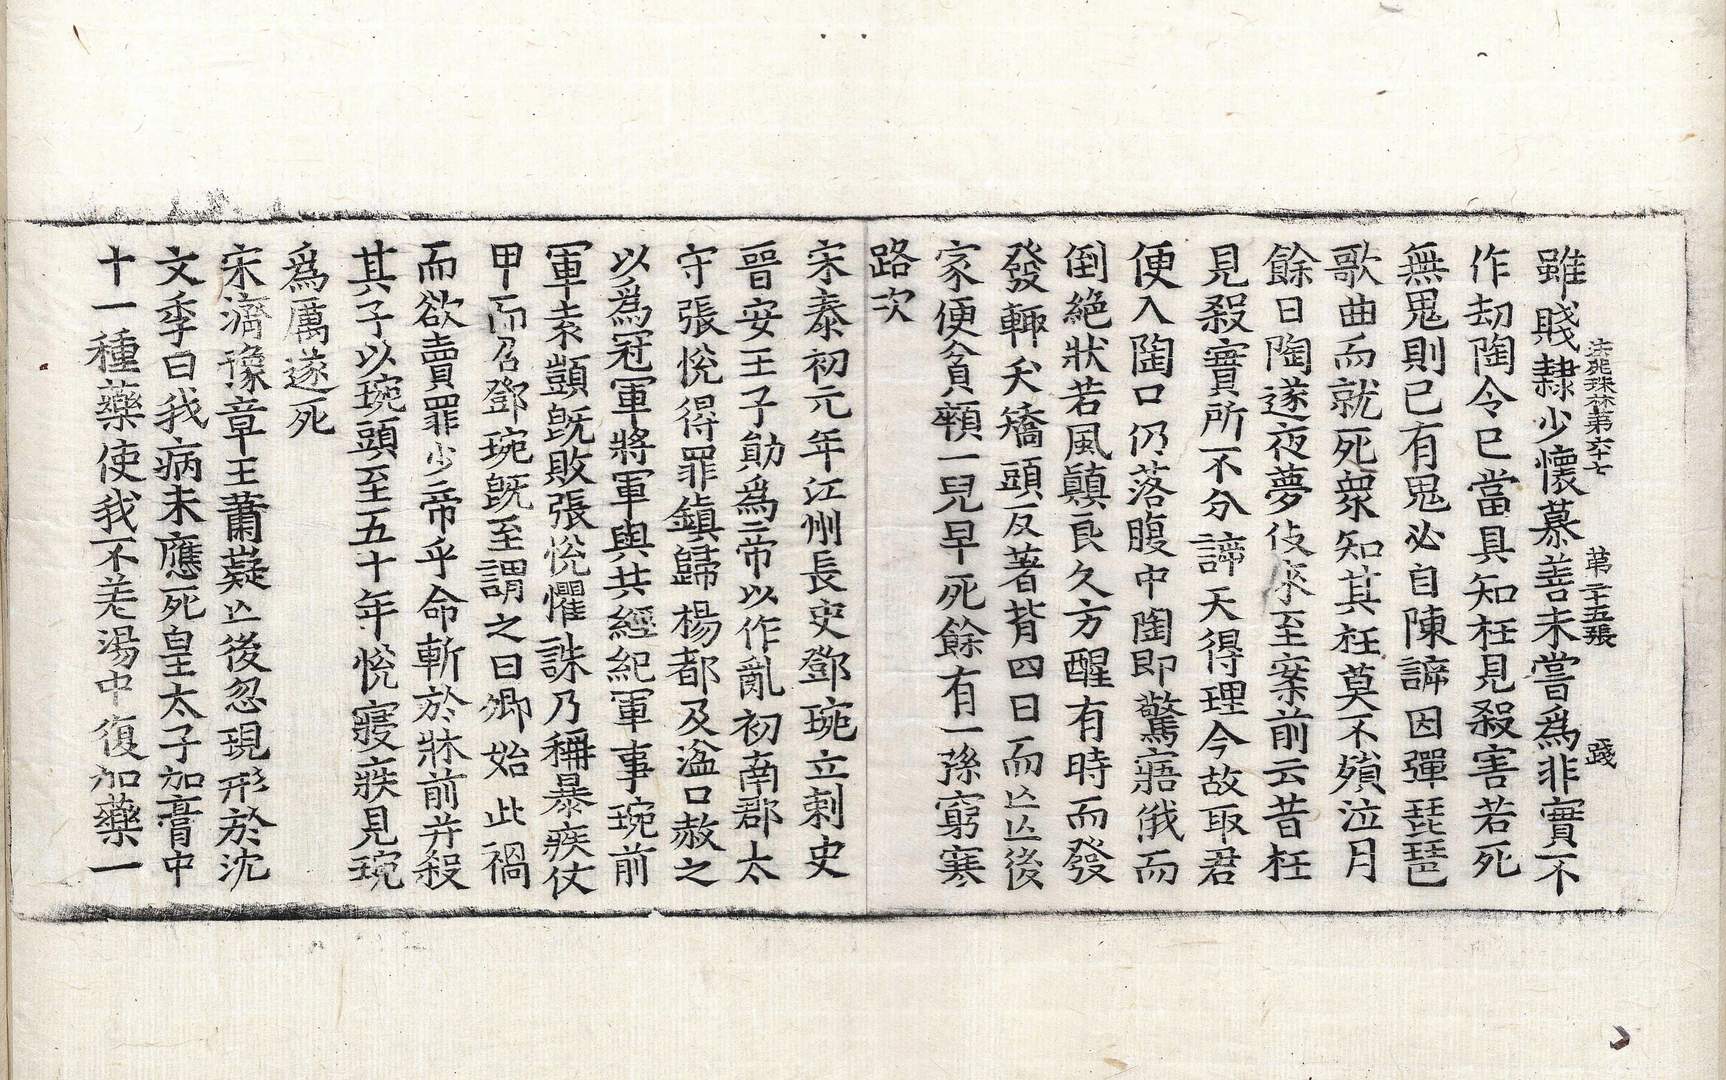 法苑珠林第六十七　第二十五張　踐
雖賤隸少懷慕善未嘗爲非實不
作劫陶令已當具知枉見殺害若死
無鬼則已有鬼必自陳訴因彈琵琶
歌曲而就死衆知其枉莫不殞泣月
餘日陶遂夜夢伎來至案前云昔枉
見殺實所不分諦天得理今故取君
便入陶口仍落腹中陶即驚寤俄而
倒絕狀若風顚良久方醒有時而發
發輙夭矯頭反著背四日而亡亡後
家便貧頓一兒早死餘有一孫窮寒
路次
宋泰初元年江州長史鄧琬立刺史
晉安王子勛爲帝以作亂初南郡太
守張悅得罪鎮歸楊都及湓口赦之
以爲冠軍將軍與共經紀軍事琬前
軍袁顗旣敗張悅懼誅乃稱暴疾仗
甲而召鄧琬旣至謂之曰卿始此禍
而欲賣罪少帝乎命斬於牀前并殺
其子以琬頭至五十年悅寢疾見琬
爲厲遂死
宋濟豫章王蕭嶷亡後忽現形於沈
文季曰我病未應死皇太子加膏中
十一種藥使我不差湯中復加藥一